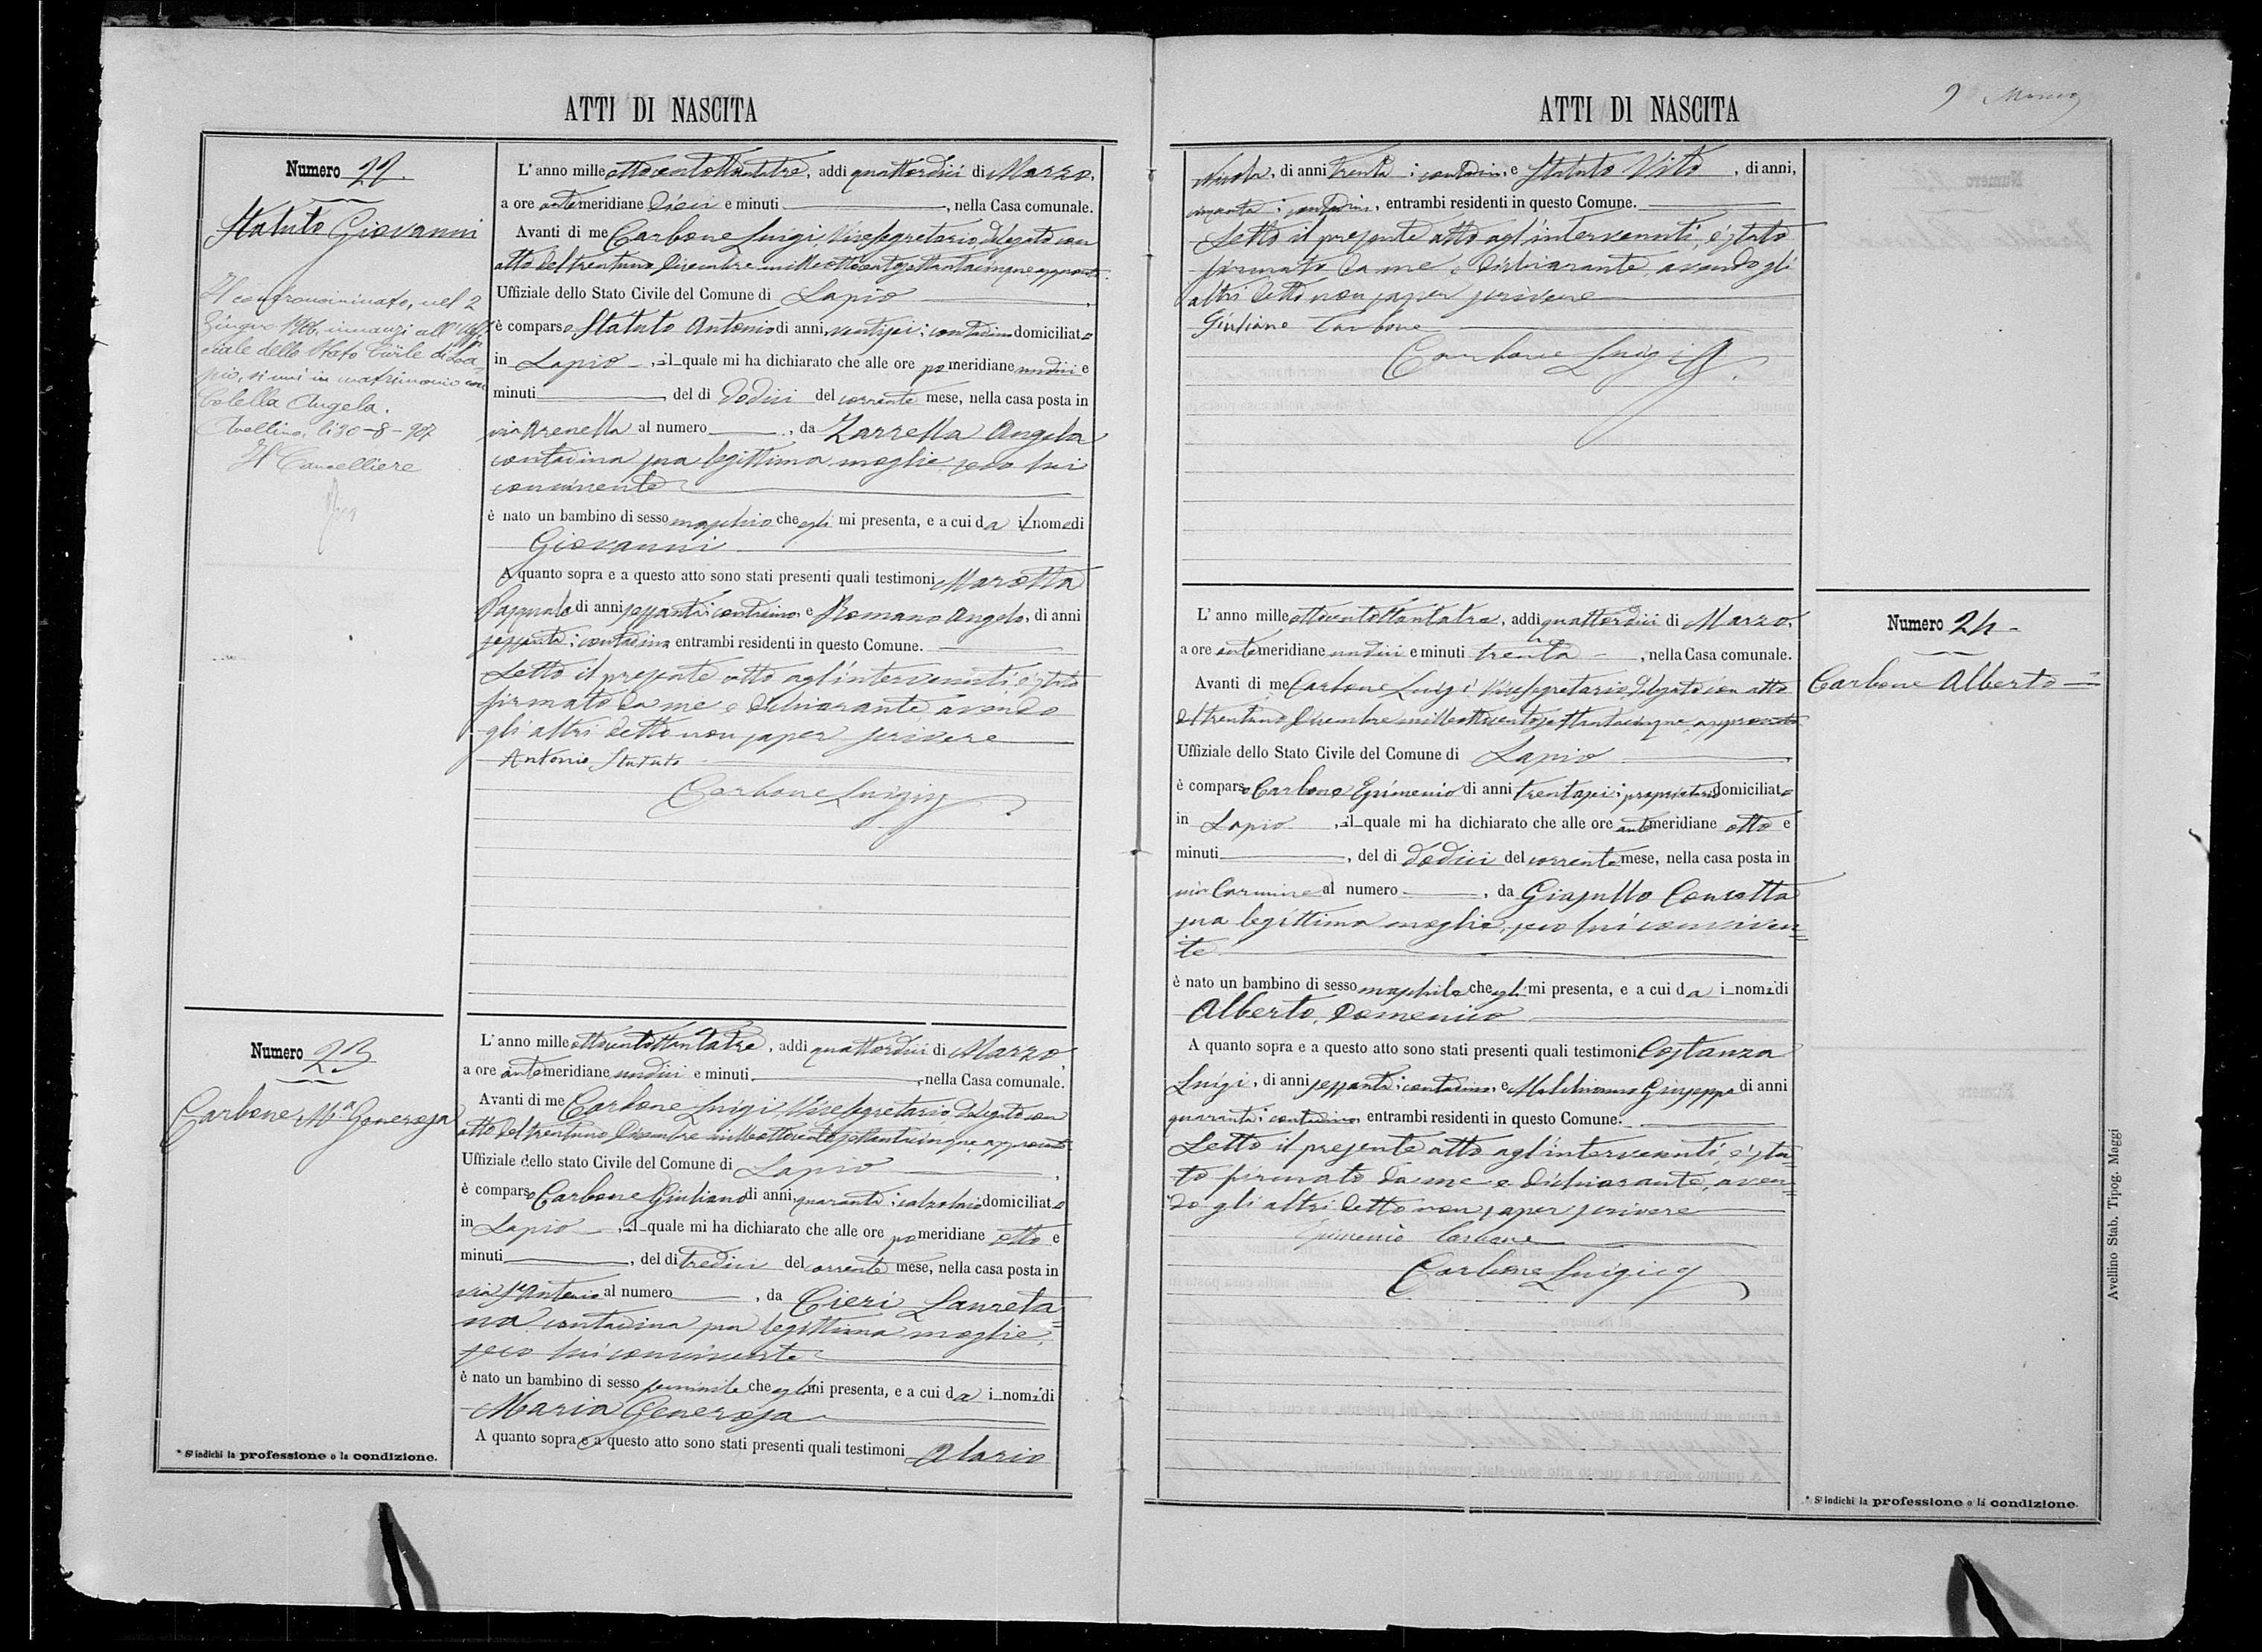 ATTI DI NASCITA
Numero 22.
Statuto Giovanni
Il contronominato, nel 2
Giugno 1906, innanzi all'Uffi
ciale dello Stato Civile di La-
pio, si unì in matrimonio con
Colella Angela.
Avellino, li 30-8-907
Il Cancelliere
L'anno mille ottocentottantatre, addi quattordici di Marzo,
a ore antemeridiane dieci e minuti, nella Casa comunale.
Avanti di me Carbone Luigi, Vicesegretario, delegato con
atto del trentuno Dicembre milleottocentosettantacinque approvato
Uffiziale dello Stato Civile del Comune di Lapio
è comparso Statuto Antonio di anni ventisei; contadino domiciliato
in Lapio, il quale mi ha dichiarato che alle ore pomeridiane undici e
minuti, del di dodici del corrente mese, nella casa posta in
via Arenella al numero, da Zarrella Angela
contadina sua legittima moglie, seco lui
convivente
è nato un bambino di sesso maschio che egli mi presenta, e a cui da il nome di
Giovanni
A quanto sopra e a questo atto sono stati presenti quali testimoni Marotta
Pasquale di anni sessanta; contadino, e Romano Angelo, di anni
sessanta; contadino entrambi residenti in questo Comune.
Letto il presente atto agl'intervenuti, è stato
firmato da me e dichiarante, avendo
gli altri detto non saper scrivere
Antonio Statuto
Carbone Luigi
Numero 23
Carbone M.a Generosa
L'anno mille ottocentottantatre, addi quattordici di Marzo,
a ore antemeridiane undici e minuti, nella Casa comunale.
Avanti di me Carbone Luigi, Vicesegretario, delegato con
atto del trentuno Dicembre milleottocentosettantacinque, approvato
Uffiziale dello stato Civile del Comune di Lapio,
è comparso Carbone Giuliano di anni quaranta; calzolaio domiciliato
in Lapio, il quale mi ha dichiarato che alle ore pomeridiane otto e
minuti, del di tredici del corrente mese, nella casa posta in
via S. Antonio al numero, da Cieri Laureta=
na contadina sua legittima moglie,
seco lui convivente
è nato un bambino di sesso feminile che egli mi presenta, e a cui da i nomi di
Maria Generosa
A quanto sopra e a questo atto sono stati presenti quali testimoni Alario
* Si indichi la professione o la condizione.
ATTI DI NASCITA
9
Nicola, di anni trenta; contadino, e Statuto Vito, di anni,
cinquanta; contadino, entrambi residenti in questo Comune.
Letto il presente atto agl'intervenuti, è stato
firmato da me e dichiarante, avendo gli
altri detto non saper scrivere
Giuliano Carbone
Carbone Luigi
L'anno mille ottocentottantatre, addi quattordici di Marzo,
a ore antemeridiane undici e minuti trenta, nella Casa comunale.
Avanti di me Carbone Luigi, Vicesegretario, delegato con atto
del trentuno Dicembre milleottocentosettantacinque, approvato
Uffiziale dello Stato Civile del Comune di Lapio
è comparso Carbone Epimenio di anni trentasei; proprietario domiciliato
in Lapio, il quale mi ha dichiarato che alle ore antemeridiane otto e
minuti, del di dodici del corrente mese, nella casa posta in
via Carmine al numero, da Giasullo Concetta
sua legittima moglie, seco lui conviven=
te
è nato un bambino di sesso maschile che egli mi presenta, e a cui da i nomi di
Alberto, Domenico
A quanto sopra e a questo atto sono stati presenti quali testimoni Costanza
Luigi, di anni sessanta; contadino, e Melchionno Giuseppe di anni
quaranta; contadino, entrambi residenti in questo Comune.
Letto il presente atto agl'intervenuti, è sta=
to firmato da me e dichiarante, aven=
do gli altri detto non saper scrivere
Epimenio Carbone
Carbone Luigi
Numero 24
Carbone Alberto
* Si indichi la professione o la condizione.
Avellino Stab. Tipog. Maggi